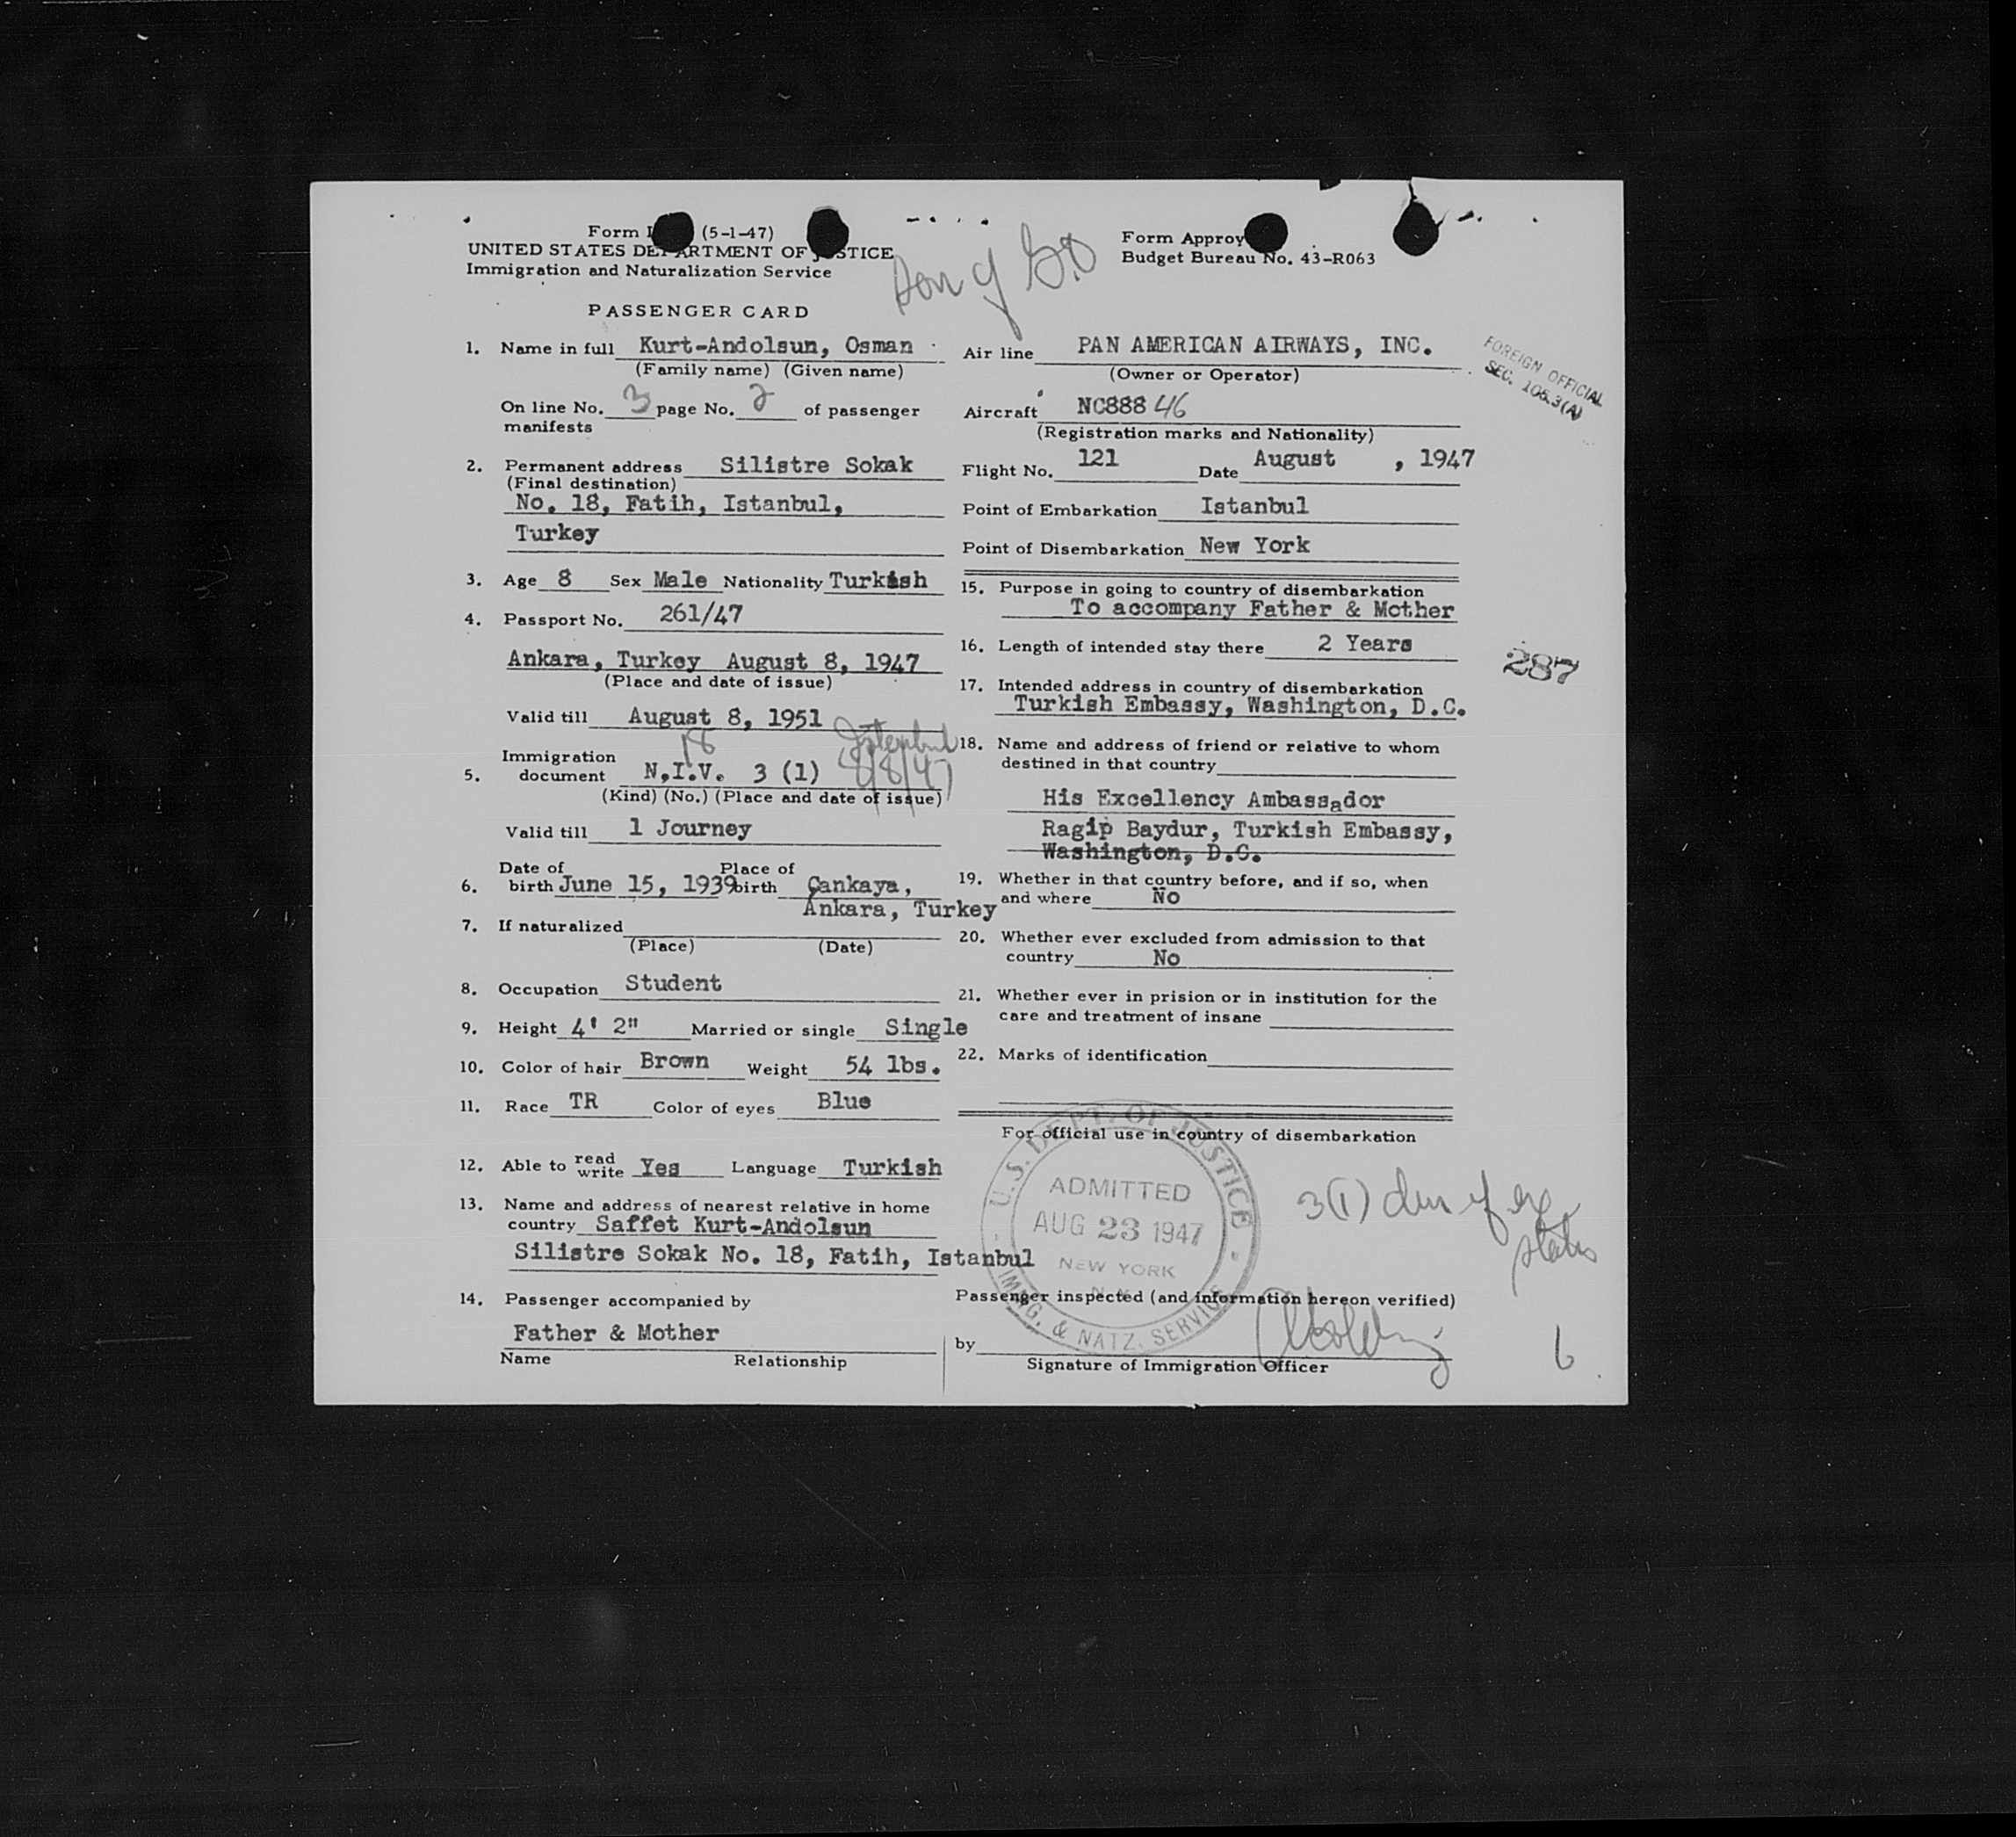 Form I (5-1-47)
UNITED STATES DEPARTMENT OF JUSTICE
Immigration and Naturalization Service
Son of G.O
Form Approv
Budget Bureau No. 43-R063
PASSENGER CARD
1. Name in full Kurt-Andolsun, Osman
(Family name) (Given name)
On line No. 3 page No. 2 of passenger
manifests
2. Permanent address Silistre Sokak
(Final destination)
No. 18, Fatih, Istanbul,
Turkey
3. Age 8 Sex Male Nationality Turkish
4. Passport No. 261/47
Ankara, Turkey August 8, 1947
(Place and date of issue)
Valid till August 8, 1951
18 Istanbul
Immigration
5. document N.I.V. 3 (1) 8/8/47
(Kind) (No.) (Place and date of issue)
Valid till 1 Journey
Date of Place of
6. birth June 15, 1939 birth Çankaya,
Ankara, Turkey
7. If naturalized
(Place) (Date)
8. Occupation Student
9. Height 4' 2" Married or single Single
10. Color of hair Brown Weight 54 lbs.
11. Race TR Color of eyes Blue
12. Able to read write Yes Language Turkish
13. Name and address of nearest relative in home
country Saffet Kurt-Andolsun
Silistre Sokak No. 18, Fatih, Istanbul
14. Passenger accompanied by
Father & Mother
Name Relationship
Air line PAN AMERICAN AIRWAYS, INC.
(Owner or Operator)
FOREIGN OFFICIAL
SEC. 105.3(A)
Aircraft NC88846
(Registration marks and Nationality)
Flight No. 121 Date August , 1947
Point of Embarkation Istanbul
Point of Disembarkation New York
15. Purpose in going to country of disembarkation
To accompany Father & Mother
16. Length of intended stay there 2 Years
287
17. Intended address in country of disembarkation
Turkish Embassy, Washington, D.C.
18. Name and address of friend or relative to whom
destined in that country
His Excellency Ambassador
Ragip Baydur, Turkish Embassy,
Washington, D.C.
19. Whether in that country before, and if so, when
and where No
20. Whether ever excluded from admission to that
country No
21. Whether ever in prision or in institution for the
care and treatment of insane
22. Marks of identification
For official use in country of disembarkation
U.S. DEPT. OF JUSTICE
ADMITTED
AUG 23 1947
NEW YORK
N.Y.
IMMG. & NATZ. SERVICE
3(1) dur of
status
Passenger inspected (and information hereon verified)
by
Signature of Immigration Officer
6